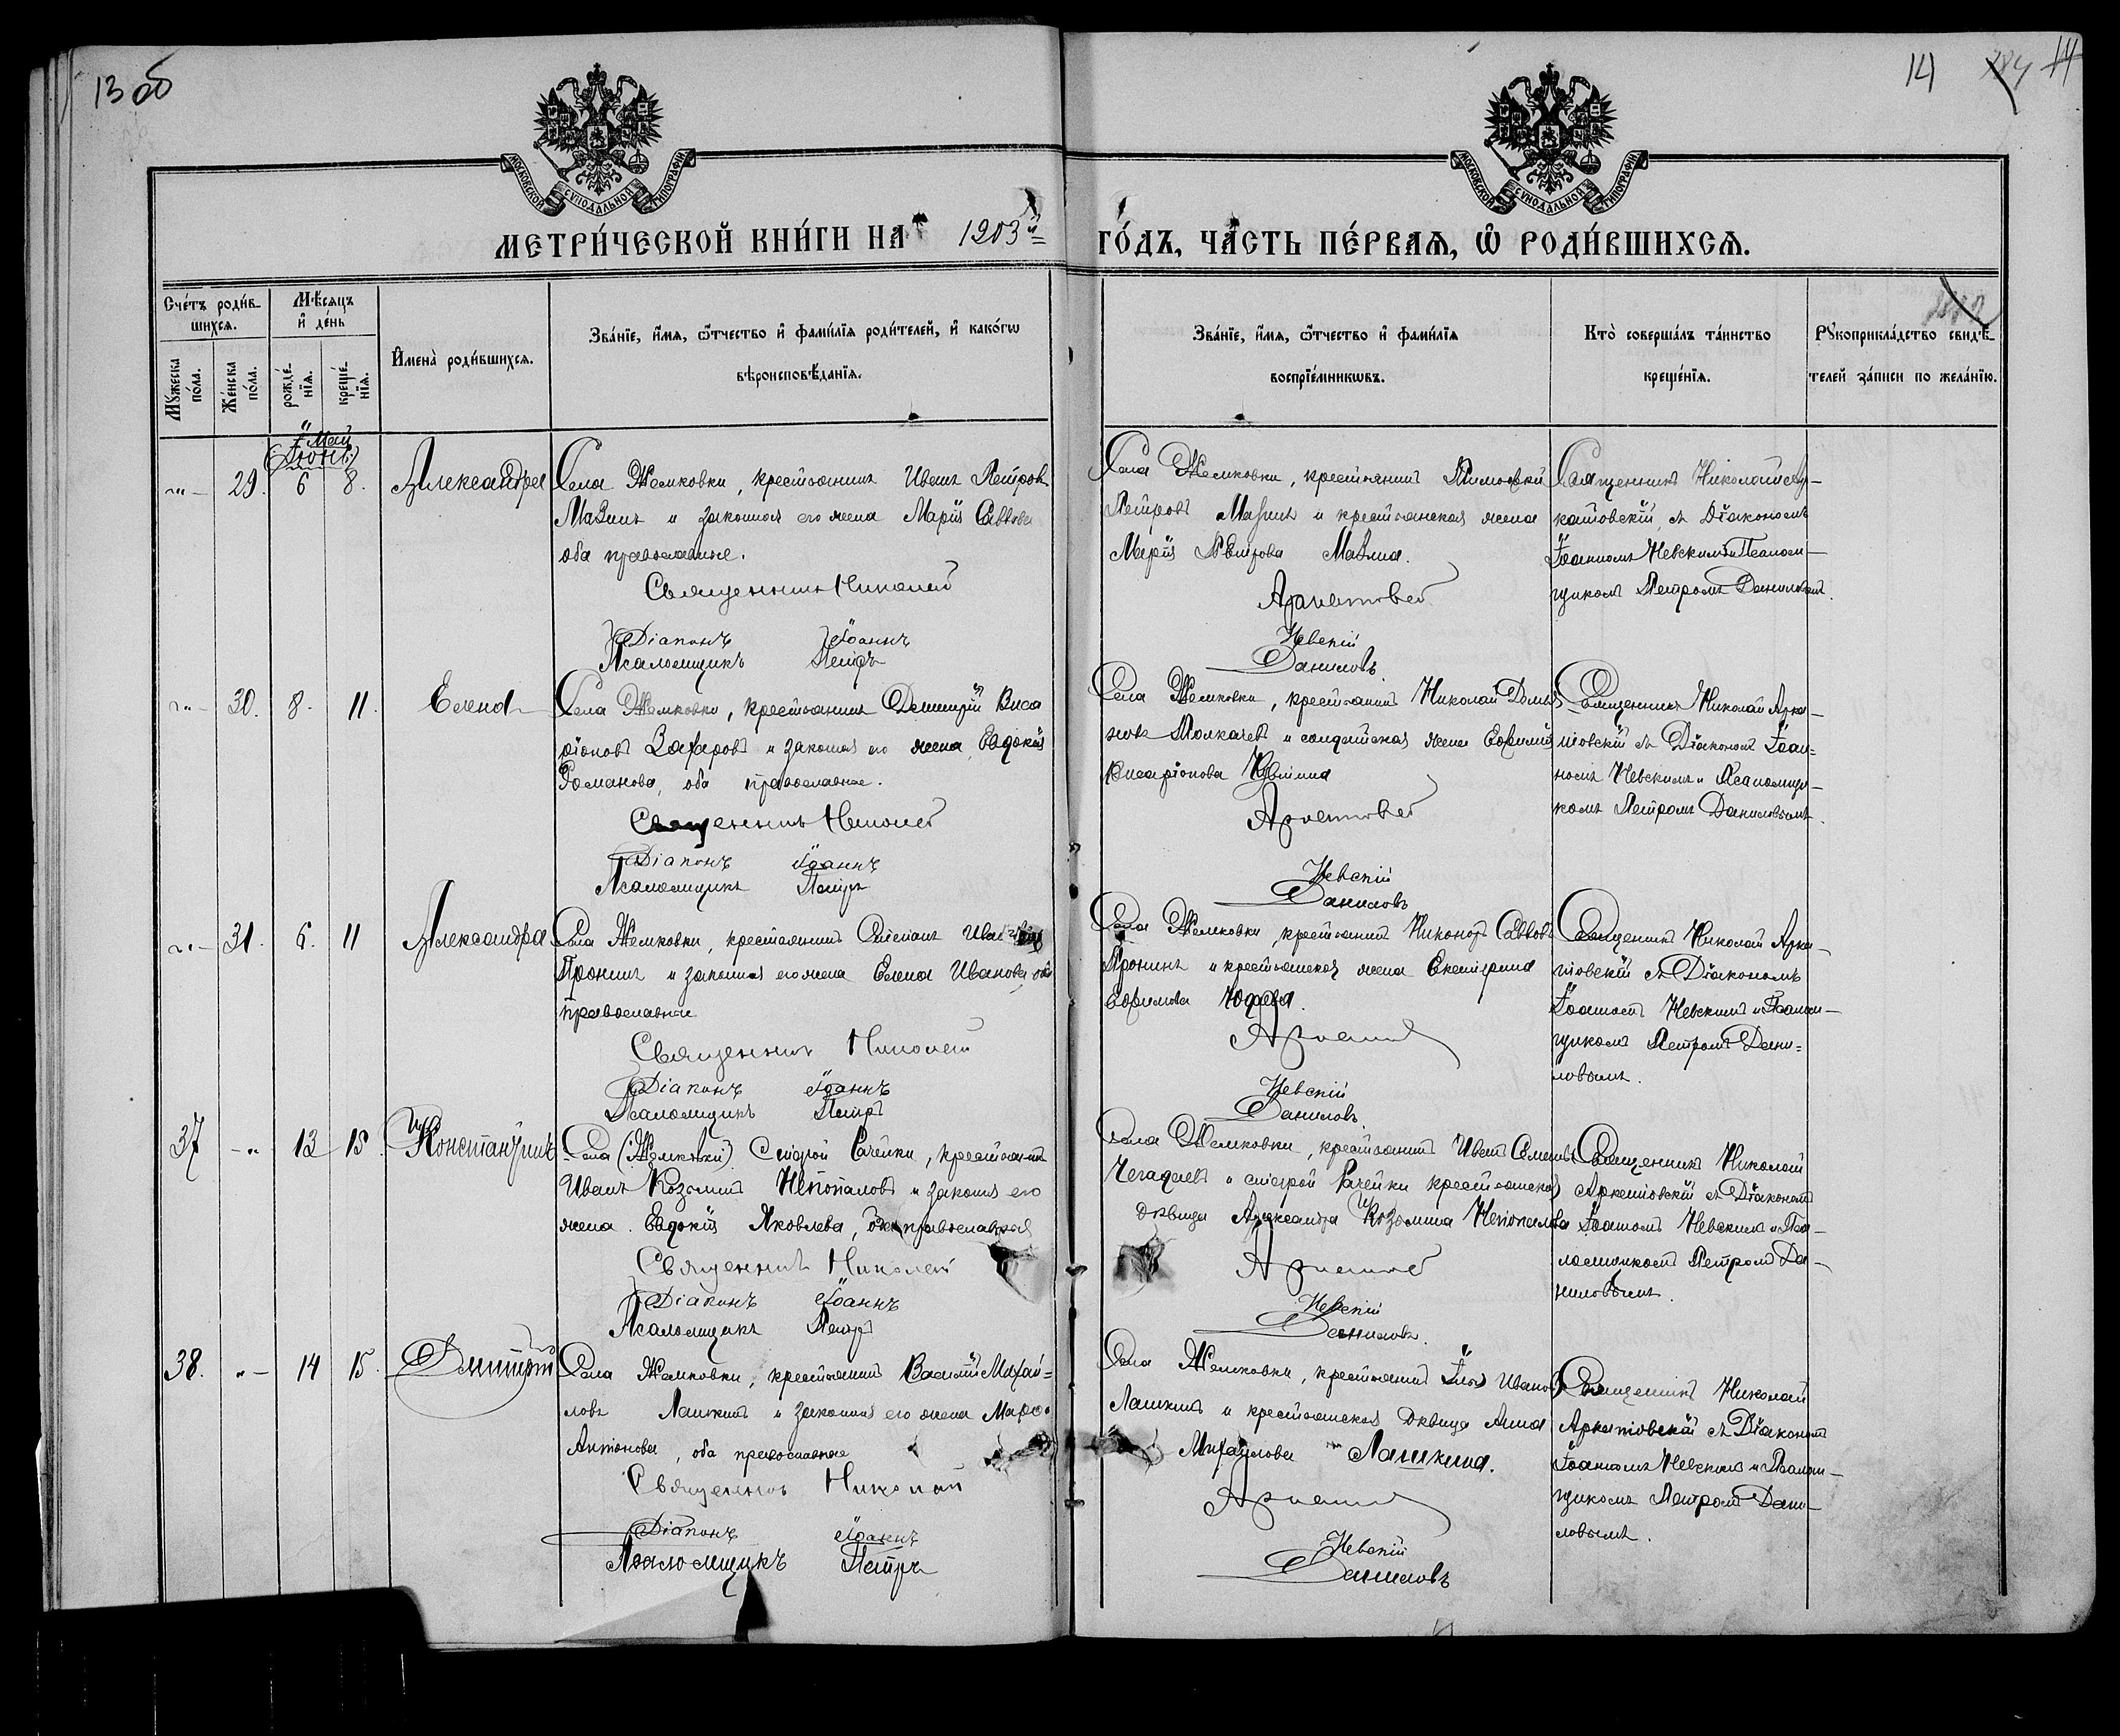 13 об
14
МОСКОВСКОЙ СУНОДАЛЬНОЙ ТИПОГРАФІИ
МОСКОВСКОЙ СУНОДАЛЬНОЙ ТИПОГРАФІИ
МЕТРИ́ЧЕСКОЙ КНИ́ГИ НА 1903й ГО́ДЪ, ЧА́СТЬ ПЕ́РВАЯ, Ѡ РОДИ́ВШИХСЯ.
Сче́тъ роди́в-
шихся.
Му́жеска по́ла.
Же́нска по́ла.
Мѣ́сяцъ
и҆ де́нь
рожде́-
нїя.
креще́-
нїя.
И҆мена̀ роди́вшихся.
Зва́нїе, и҆́мя, ѻ҆́тчество и҆ фами́лїя роди́телей, и҆ како́гѡ
вѣроисповѣ́данїя.
Зва́нїе, и҆́мя, ѻ҆́тчество и҆ фами́лїя
воспрїе́мникѡвъ.
Кто̀ соверша́лъ та́инство
креще́нїя.
Рꙋкоприкла́дство свидѣ́-
телей за́писи по жела́нїю.
Май
(Іюнь)
29. 6 8. Александра
Села Жемковки, крестьянинъ Иванъ Петровъ
Мазинъ и законная его жена Марія Саввова
оба православные.
Священникъ Николай
Діаконъ Іоаннъ
Псаломщикъ Петръ
Села Жемковки, крестьянинъ Тимоѳей
Петровъ Мазинъ и крестьянская жена
Марія Петрова Мазина.
Аркатовскій
Невскій
Даниловъ
Священникъ Николай Ар-
катовскій съ Діакономъ
Іоанномъ Невскимъ и Псалом-
щикомъ Петромъ Даниловымъ.
30. 8. 11. Елена
Села Жемковки, крестьянинъ Димитрій Виса
ріоновъ Захаровъ и законная его жена Евдокія
Романова, оба православные.
Священникъ Николай
Діаконъ Іоаннъ
Псаломщикъ Петръ
Села Жемковки, крестьянинъ Николай
Толкачевъ и солдатская жена Евфимія
Висаріонова
Аркатовскій
Невскій
Даниловъ
Священникъ Николай Арка-
товскій съ Діакономъ Іоан=
номъ Невскимъ и Псаломщи-
комъ Петромъ Даниловымъ.
31. 6. 11 Александра
Села Жемковки, крестьянинъ Степанъ
Пронинъ и законная его жена Елена Иванова оба
православные
Священникъ Николай
Діаконъ Іоаннъ
Псаломщикъ Петръ
Села Жемковки, крестьянинъ Никоноръ Саввовъ
Пронинъ и крестьянская жена Екатерина
Ефимова
Аркатов
Невскій
Даниловъ
Священникъ Николай Арка-
товскій съ Діакономъ
Іоанномъ Невскимъ и Псалом-
щикомъ Петромъ Дани=
ловымъ.
37 13 15. Константинъ
Села (Жемковки) Старой Рачейки, крестьянинъ
Иванъ Козминъ Непопаловъ и законная его
жена Евдокія Яковлева, оба православныя
Священникъ Николай
Діаконъ Іоаннъ
Псаломщикъ Петръ
Села Жемковки, крестьянинъ Иванъ Семеновъ
Чегадаевъ и старой Рачейки крестьянская
дѣвица Александра Козьмина Непопалова
Аркатов
Невскій
Даниловъ.
Священникъ Николай
Аркатовскій съ Діакономъ
Іоанномъ Невскимъ и Пса-
ломщикомъ Петромъ Да-
ниловымъ.
38. 14 15. Димитрій
Села Жемковки, крестьянинъ Василій Михай=
ловъ Лашкинъ и законная его жена Марѳа
Антонова, оба православные
Священникъ Николай
Діаконъ Іоаннъ
Псаломщикъ Петръ
Села Жемковки, крестьянинъ Илья Ивановъ
Лашкинъ и крестьянская дѣвица Анна
Михайлова Лашкина.
Аркатов
Невскій
Даниловъ
Священникъ Николай
Аркатовскій съ Діакономъ
Іоанномъ Невскимъ и Псалом-
щикомъ Петромъ Дани-
ловымъ.